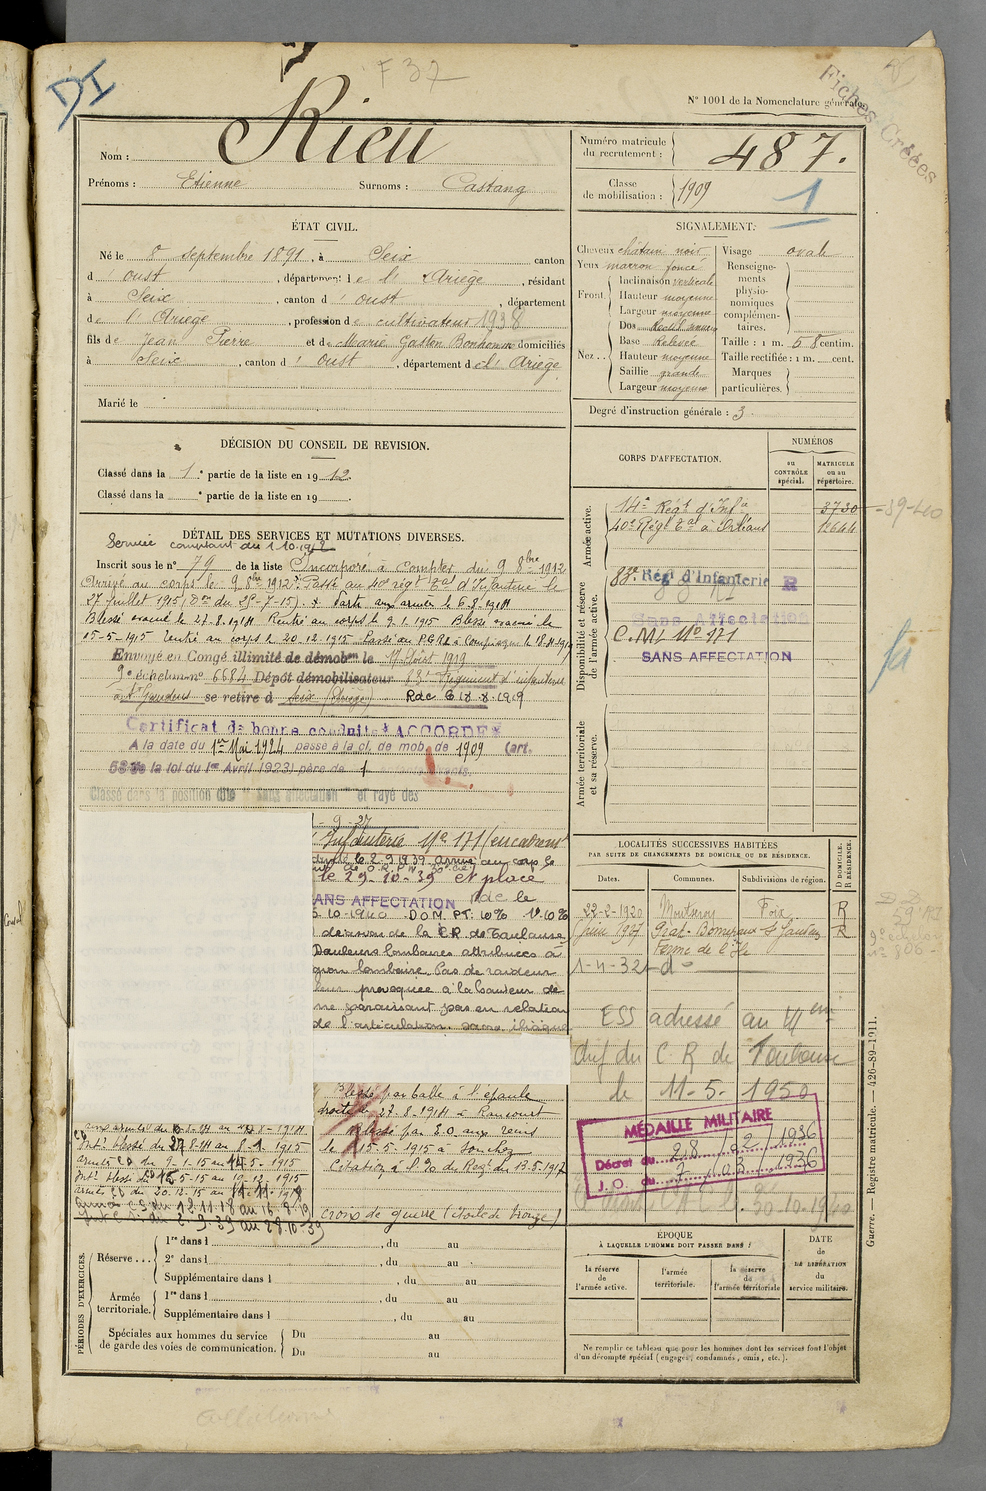 DI
F 37
Fiches Créées
N° 1001 de la Nomenclature générale.
Nom : Rieu
Prénoms : Etienne Surnoms : Castang
Numéro matricule du recrutement : 487.
Classe de mobilisation : 1909
1
ÉTAT CIVIL.
Né le 8 septembre 1891, à Seix canton
d'oust, département de l'Ariège, résidant
à Seix, canton d'oust, département
de l'Ariège, profession de cultivateur 1938
fils de Jean Pierre et de Marie Gaston Bonhomme domiciliés
à Seix, canton d'oust, département de l'Ariège
Marié le
SIGNALEMENT.
Cheveux châtain noir
Yeux marron foncé
Front. Inclinaison verticale
Hauteur moyenne
Largeur moyenne
Nez... Dos
Base Relevée
Hauteur moyenne
Saillie grande
Largeur moyenne
Visage ovale
Renseignements physionomiques complémentaires.
Taille : 1 m. 58 centim.
Taille rectifiée : 1 m. cent.
Marques particulières.
Degré d'instruction générale : 3
DÉCISION DU CONSEIL DE REVISION.
Classé dans la 1e partie de la liste en 1912.
Classé dans la e partie de la liste en 19
CORPS D'AFFECTATION.
NUMÉROS
au CONTRÔLE spécial.
MATRICULE ou au répertoire.
Armée active.
14e Régt d'Infie 3730
40e Régt Tal à Orléans 12644
39-440
Disponibilité et réserve de l'armée active.
83e Régt d'Infanterie R
Sans Affectation
C.M.I. N° 171
SANS AFFECTATION
Armée territoriale et sa réserve.
DÉTAIL DES SERVICES ET MUTATIONS DIVERSES.
Service comptant du 1.10.1912
Inscrit sous le n° 79 de la liste Incorporé à compter du 9 8bre 1912
Arrivé au corps le 9 8bre 1912. Passé au 40e régt Tal d'Infanterie le
27 juillet 1915 (Don du 25-7-15). Parti aux armées le 6-8-1914
Blessé évacué le 27-8-1914 Rentré au corps le 9-1-1915 Blessé évacué le
15-5-1915 Rentré au corps le 20.12.1915 Passé au P.G.R.I. à Compiègne le 18-11-19
Envoyé en Congé illimité de démobon le 17 Août 1919
9e échelon n° 6684 Dépôt démobilisateur 83e Régiment d'infanterie
à St Gaudens se retire d Seix (Ariège) Rdc 6 le X 1919
Certificat de bonne conduite ACCORDÉ
A la date du 1er Mai 1924 passe à la cl. de mob. de 1909 (art.
58 de la loi du 1er Avril 1923) père de 1 enfants vivants.
Classé dans la position dite "Sans affectation" et rayé des
- 9 - 27
Infanterie N° 171 (encadremt
le 2.9.1939 arrivé au corps le
le 29-10-39 et placé
SANS AFFECTATION Rdc le
5.10-1940 D.O.M. PT: 10% V. 10%
décision de la C.R. de Toulouse
Douleurs lombaires attribuées à
lombaire. Pas de raideur
provoquée à la hauteur de
ne paraissant pas en relation
de l'articulation
Blessé par balle à l'épaule
droite le 27-8-1914 à Rancourt
Blessé par E.O. aux reins
le 15-5-1915 à Souchez
Citation à l'O. du Régt du 13.5.1917
Croix de guerre (étoile de bronze)
aux armées du 6-8-14 au 27-8-1914
Intr blessé du 27-8-14 au 8-1-1915
armées CD du 9-1-15 au 14-5-1915
Intr blessé du 15-5-15 au 19-12-1915
armées CD du 20.12.15 au 11-11-1918
CS du 12.11.18 au 16.8.19
Int. S. du 2.9.39 au 28.10.39
LOCALITÉS SUCCESSIVES HABITÉES
PAR SUITE DE CHANGEMENTS DE DOMICILE OU DE RÉSIDENCE.
Dates. Communes. Subdivisions de région. D DOMICILE. R RÉSIDENCE.
22-2-1920 Foix R
Juin 1927 St Gaudens R
Ferme de l'Ile
1-4-32 - do -
ESS adressé au
du C R de Toulouse
le 11-5-1950
MÉDAILLE MILITAIRE
Décret du 28/2/1936
J. O. du 7 mars 1936
30-10-1940
PÉRIODES D'EXERCICES.
Réserve... 1re dans l , du au
2e dans l , du au
Supplémentaire dans l , du au
Armée territoriale. 1re dans l , du au
Supplémentaire dans l , du au
Spéciales aux hommes du service de garde des voies de communication. Du au
Du au
ÉPOQUE
À LAQUELLE L'HOMME DOIT PASSER DANS :
la réserve de l'armée active.
l'armée territoriale.
la réserve de l'armée territoriale
DATE de LIBÉRATION du service militaire.
Ne remplir ce tableau que pour les hommes dont les services font l'objet
d'un décompte spécial (engagés, condamnés, omis, etc.).
Guerre. — Registre matricule. — 426-89-1911.